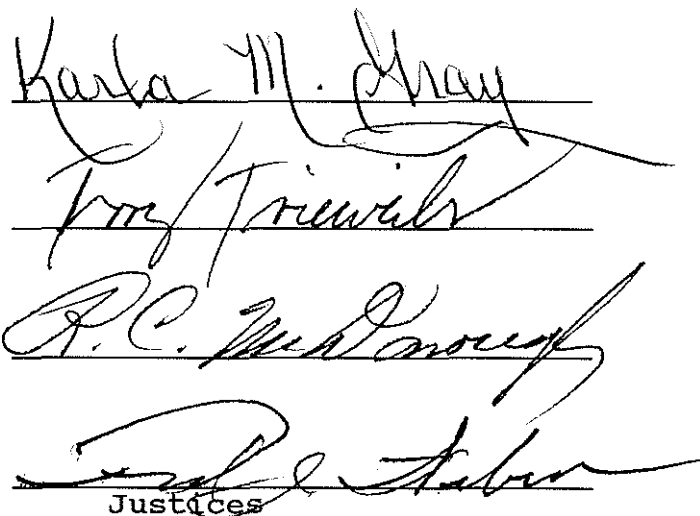 Karla M. Gray
Terry Trieweiler
R. C. McDonough
Fred J. Weber
Justices